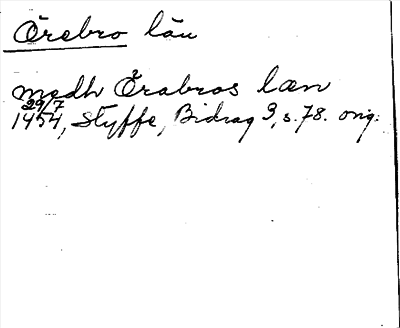 Örebro län
medh Örabros læn
29/7
1454, Styffe, Bidrag 3, s. 78. orig.